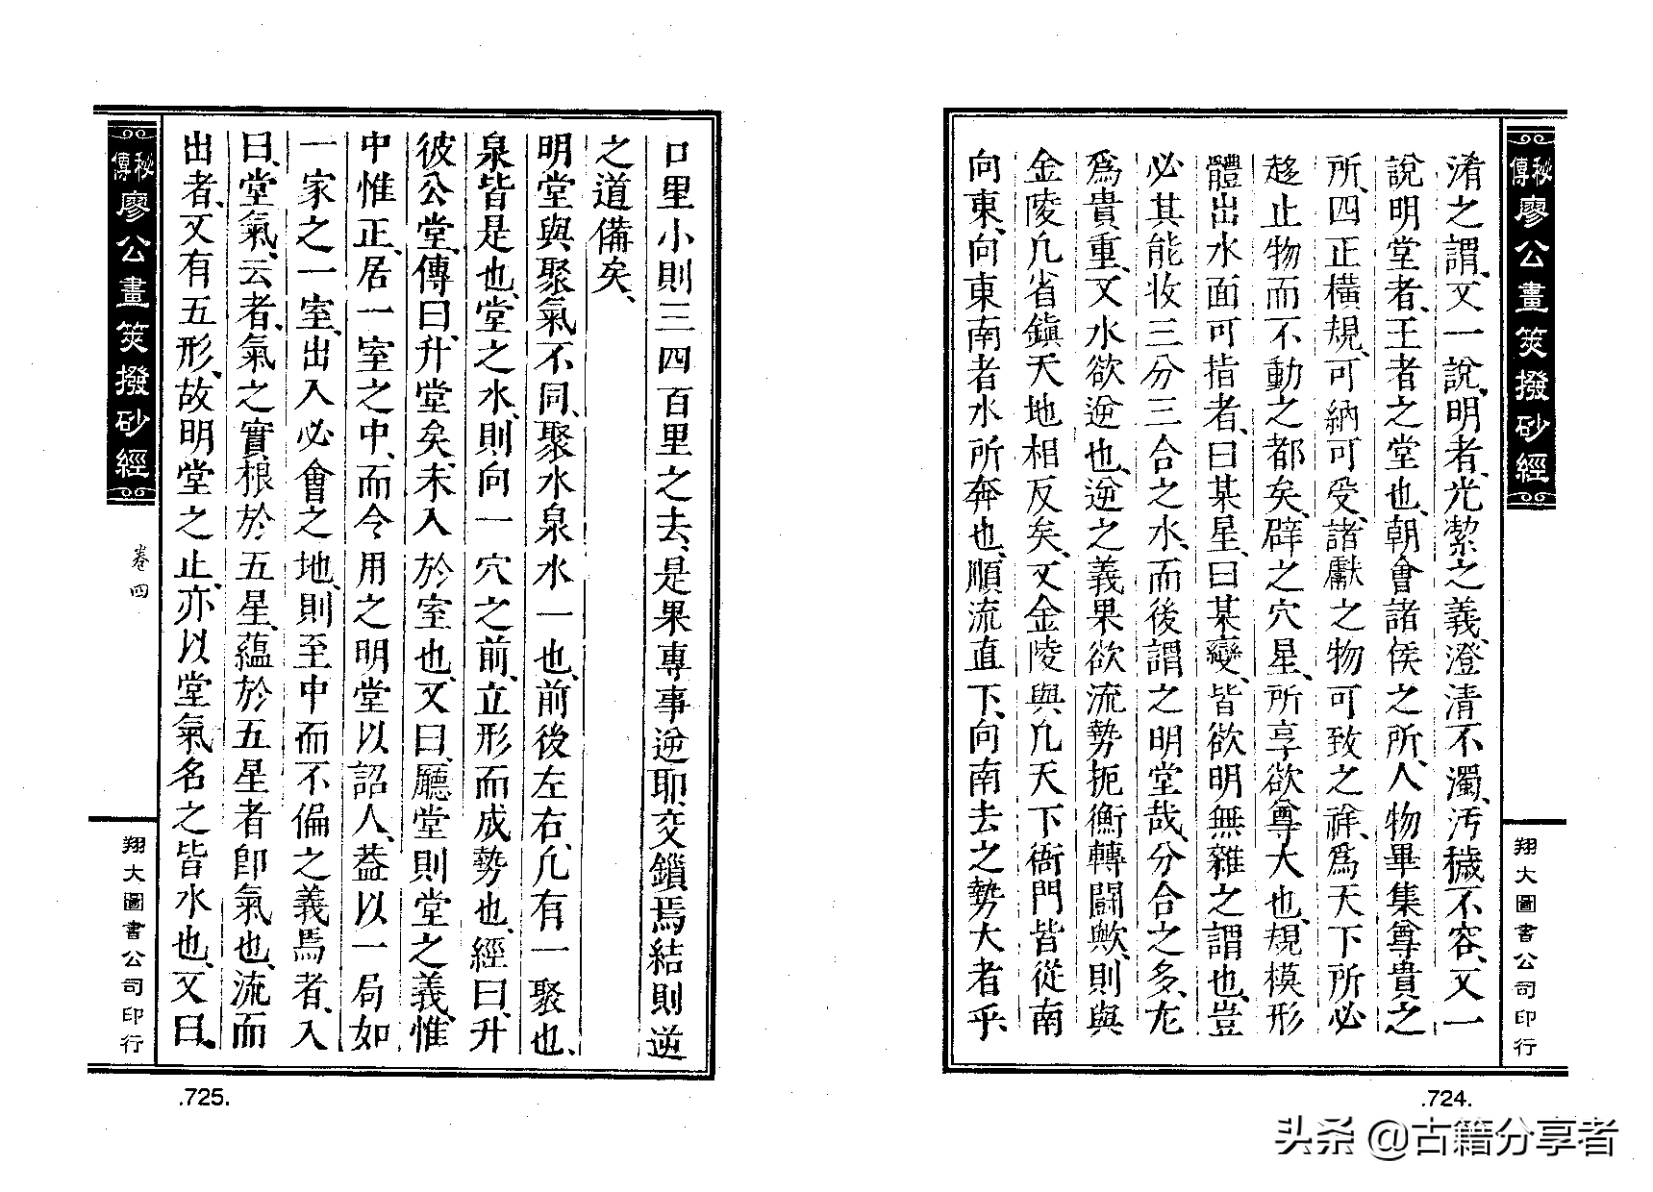 秘傳廖公畫筴撥砂經
翔大圖書公司印行
淆之謂、又一說、明者、光絜之義、澄清不濁、汚穢不容、又一
說明堂者、王者之堂也、朝會諸侯之所、人物畢集、尊貴之
所、四正橫規、可納可受、諸獻之物、可致之祥、爲天下所必
趍止物而不動之都矣、辟之穴星、所享欲尊大也、規模形
體出水面可指者、曰某星、曰某變、皆欲明無雜之謂也、豈
必其能收三分三合之水、而後謂之明堂哉、分合之多、尤
爲貴重、又水欲逆也、逆之義果欲流勢扼衝轉鬭歟、則與
金陵凡省鎮天地相反矣、又金陵與凡天下衙門皆從南
向東、向東南者水所奔也、順流直下、向南去之勢大者乎、
.724.
口里小則三四百里之去、是果專事逆耶、交鎖焉結則逆
之道備矣、
明堂與聚氣不同、聚水泉水一也、前後左右、凡有一聚也、
泉皆是也、堂之水、則向一穴之前、立形而成勢也、經曰、升
彼公堂、傳曰、升堂矣、未入於室也、又曰、廳堂則堂之義、惟
中惟正、居一室之中、而今用之明堂以詔人、葢以一局如
一家之一室、出入必會之地、則至中而不偏之義焉者、入
曰、堂氣、云者、氣之實、根於五星、蘊於五星者卽氣也、流而
出者、又有五形、故明堂之止、亦以堂氣名之皆水也、又曰、
秘傳廖公畫筴撥砂經
卷四
翔大圖書公司印行
.725.
头条 @古籍分享者